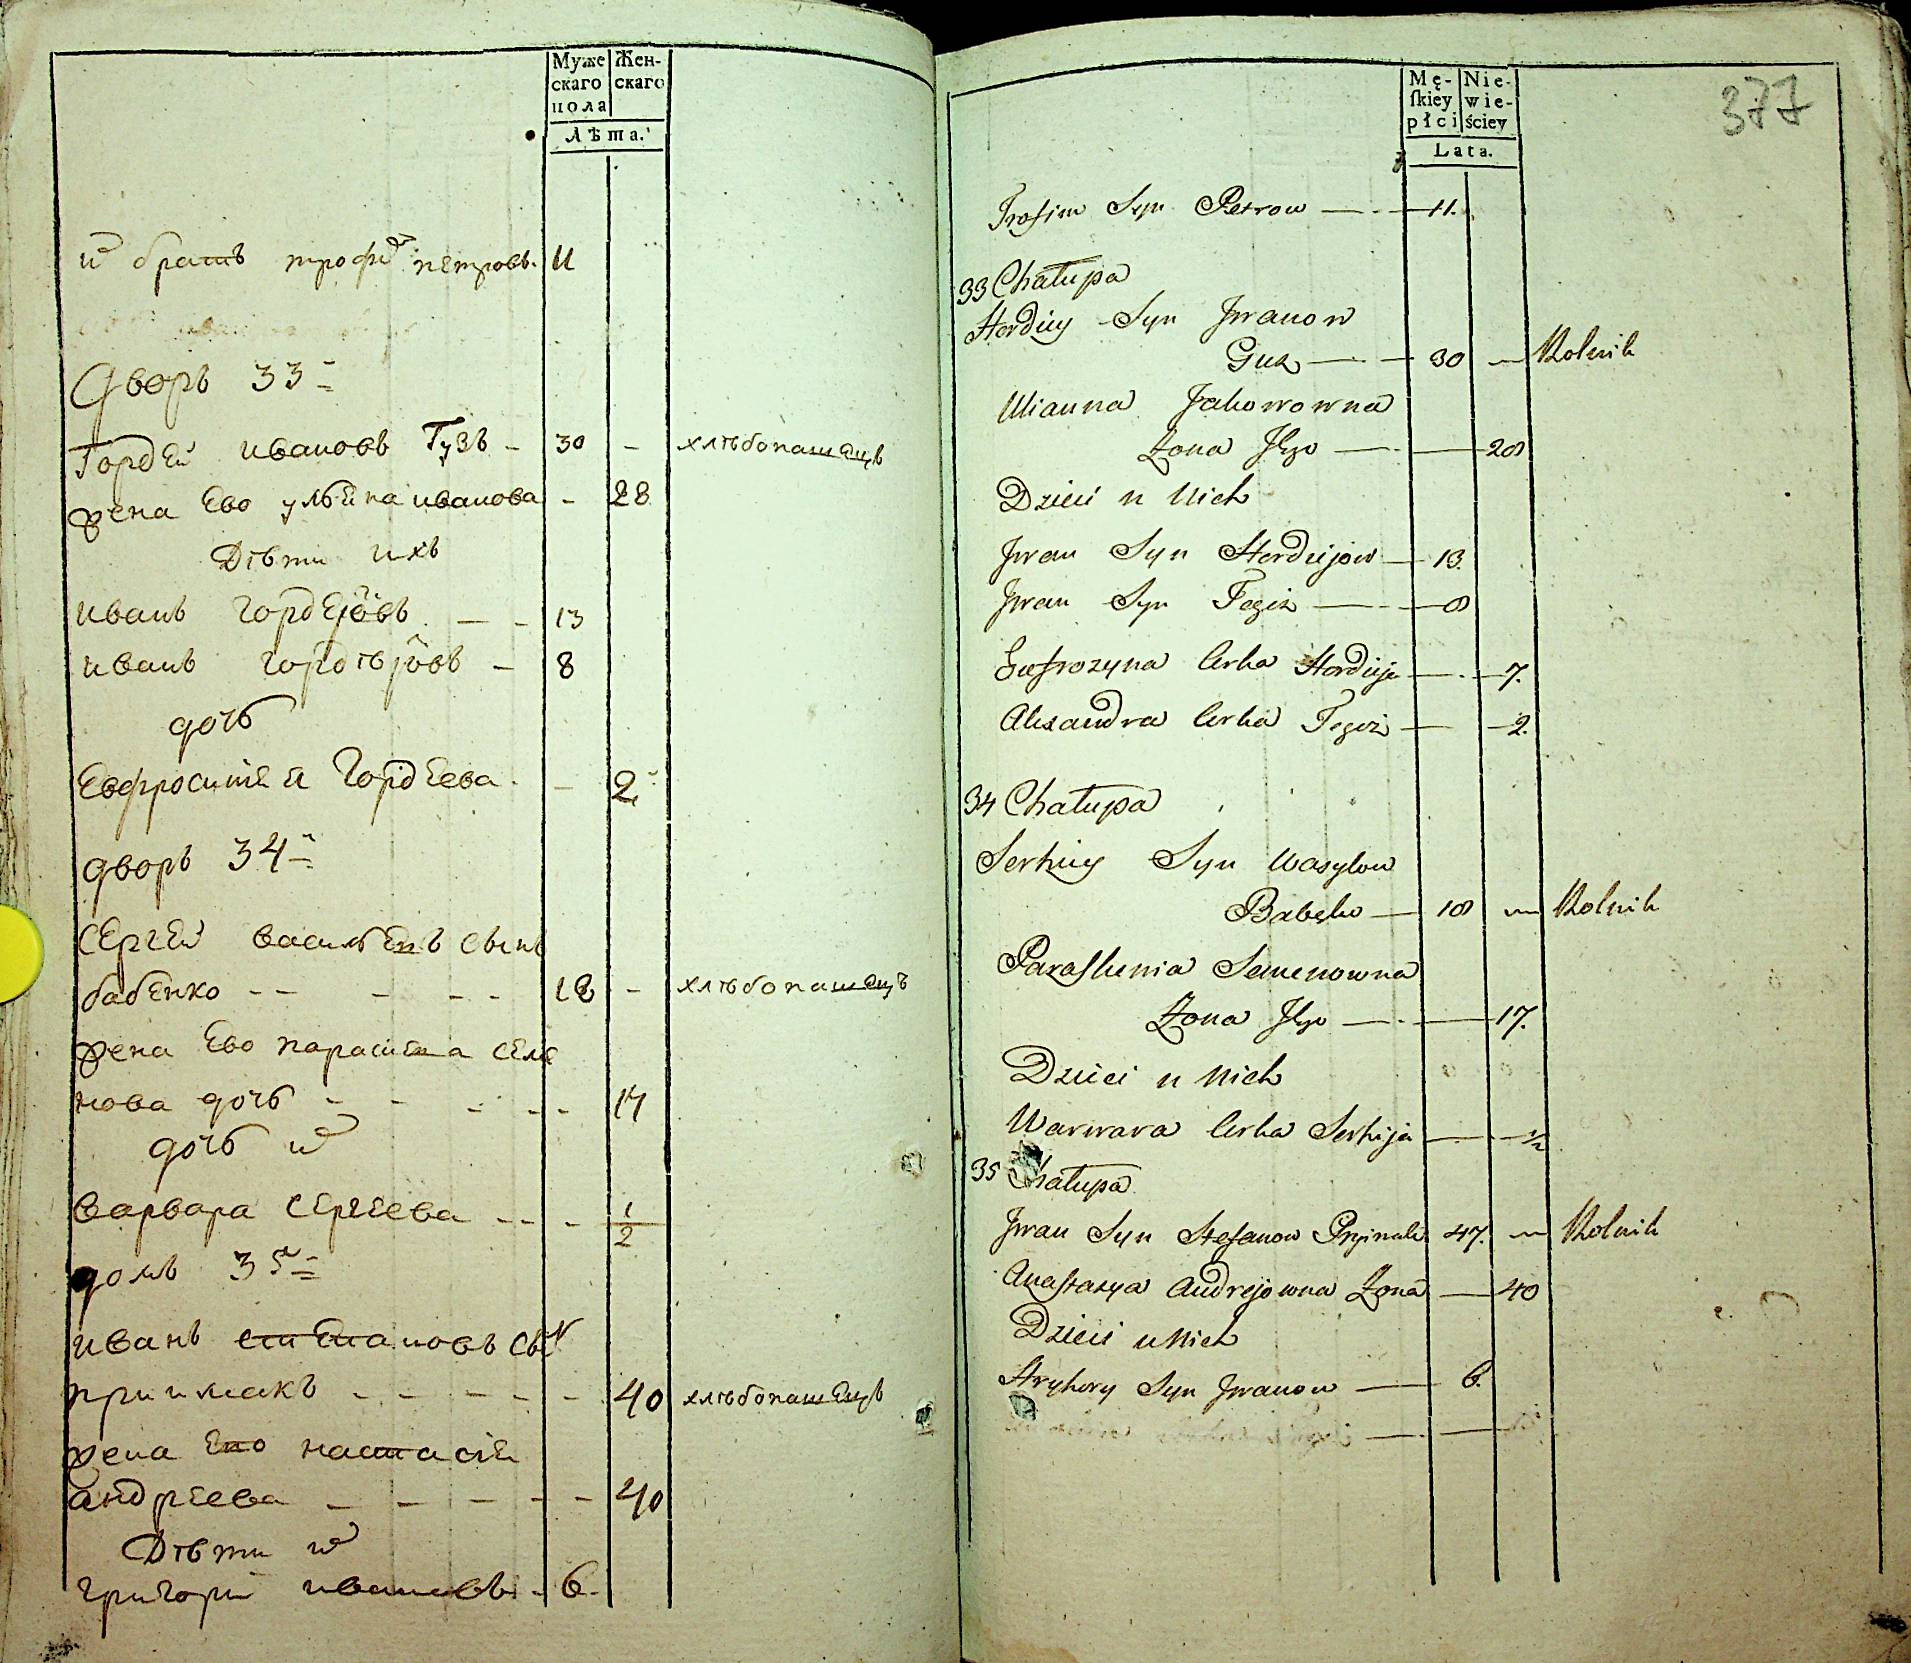 Муже
скаго
пола
Жен-
скаго
Лѣта.
их братъ трофим петровъ. 11
Дворъ 33й
Гордей ивановъ Гузъ - 30 - хлѣбопашецъ
жена Ево ульяна иванова - 28
Дѣти ихъ
иванъ гордеіовъ - - 13
иванъ гордѣіовъ - 8
дочь
Евфросинія Гордеева - 2
дворъ 34й
Сергей васильевъ сынъ
бабенко - - - - - 18 - хлѣбопашецъ
жена Ево
нова дочь - - - - 17
дочь их
варвара Сергеева - - - 1/2
домъ 35й
иванъ степановъ сын
приимакъ - - - - - 40 хлѣбопашецъ
жена Ево настасія
андреева - - - - - 40
Дѣти их
григорій ивановъ - 6.
Mę-
ſkiey
płci
Nie-
wie-
ściey
Lata.
377
Trofim Syn Petrow — 11.
33 Chałupa
Hordiey Syn Jwanow
Guz — 30 — Rolnik
Ulianna Jakowowna
Żona Jego — 28
Dzieci u Nich
Jwan Syn Hordiejow — 13.
Jwan Syn Tegiż — 8
Eufrozyna Corka Hordieja — 7.
Alexandra Corka Tegoż — 2.
34 Chałupa
Serhiey Syn Wasylow
Babeko — 18 — Rolnik
Paraskenia Semenowna
Żona Jego — 17.
Dzieci u Nich
Warwara Corka Serhija — 1/2
35 Chałupa
Jwan Syn Stefanow 47. — Rolnik
Anastazya Andrejowna Żona — 40
Dzieci u Nich
Hryhory Syn Jwanow — 6.